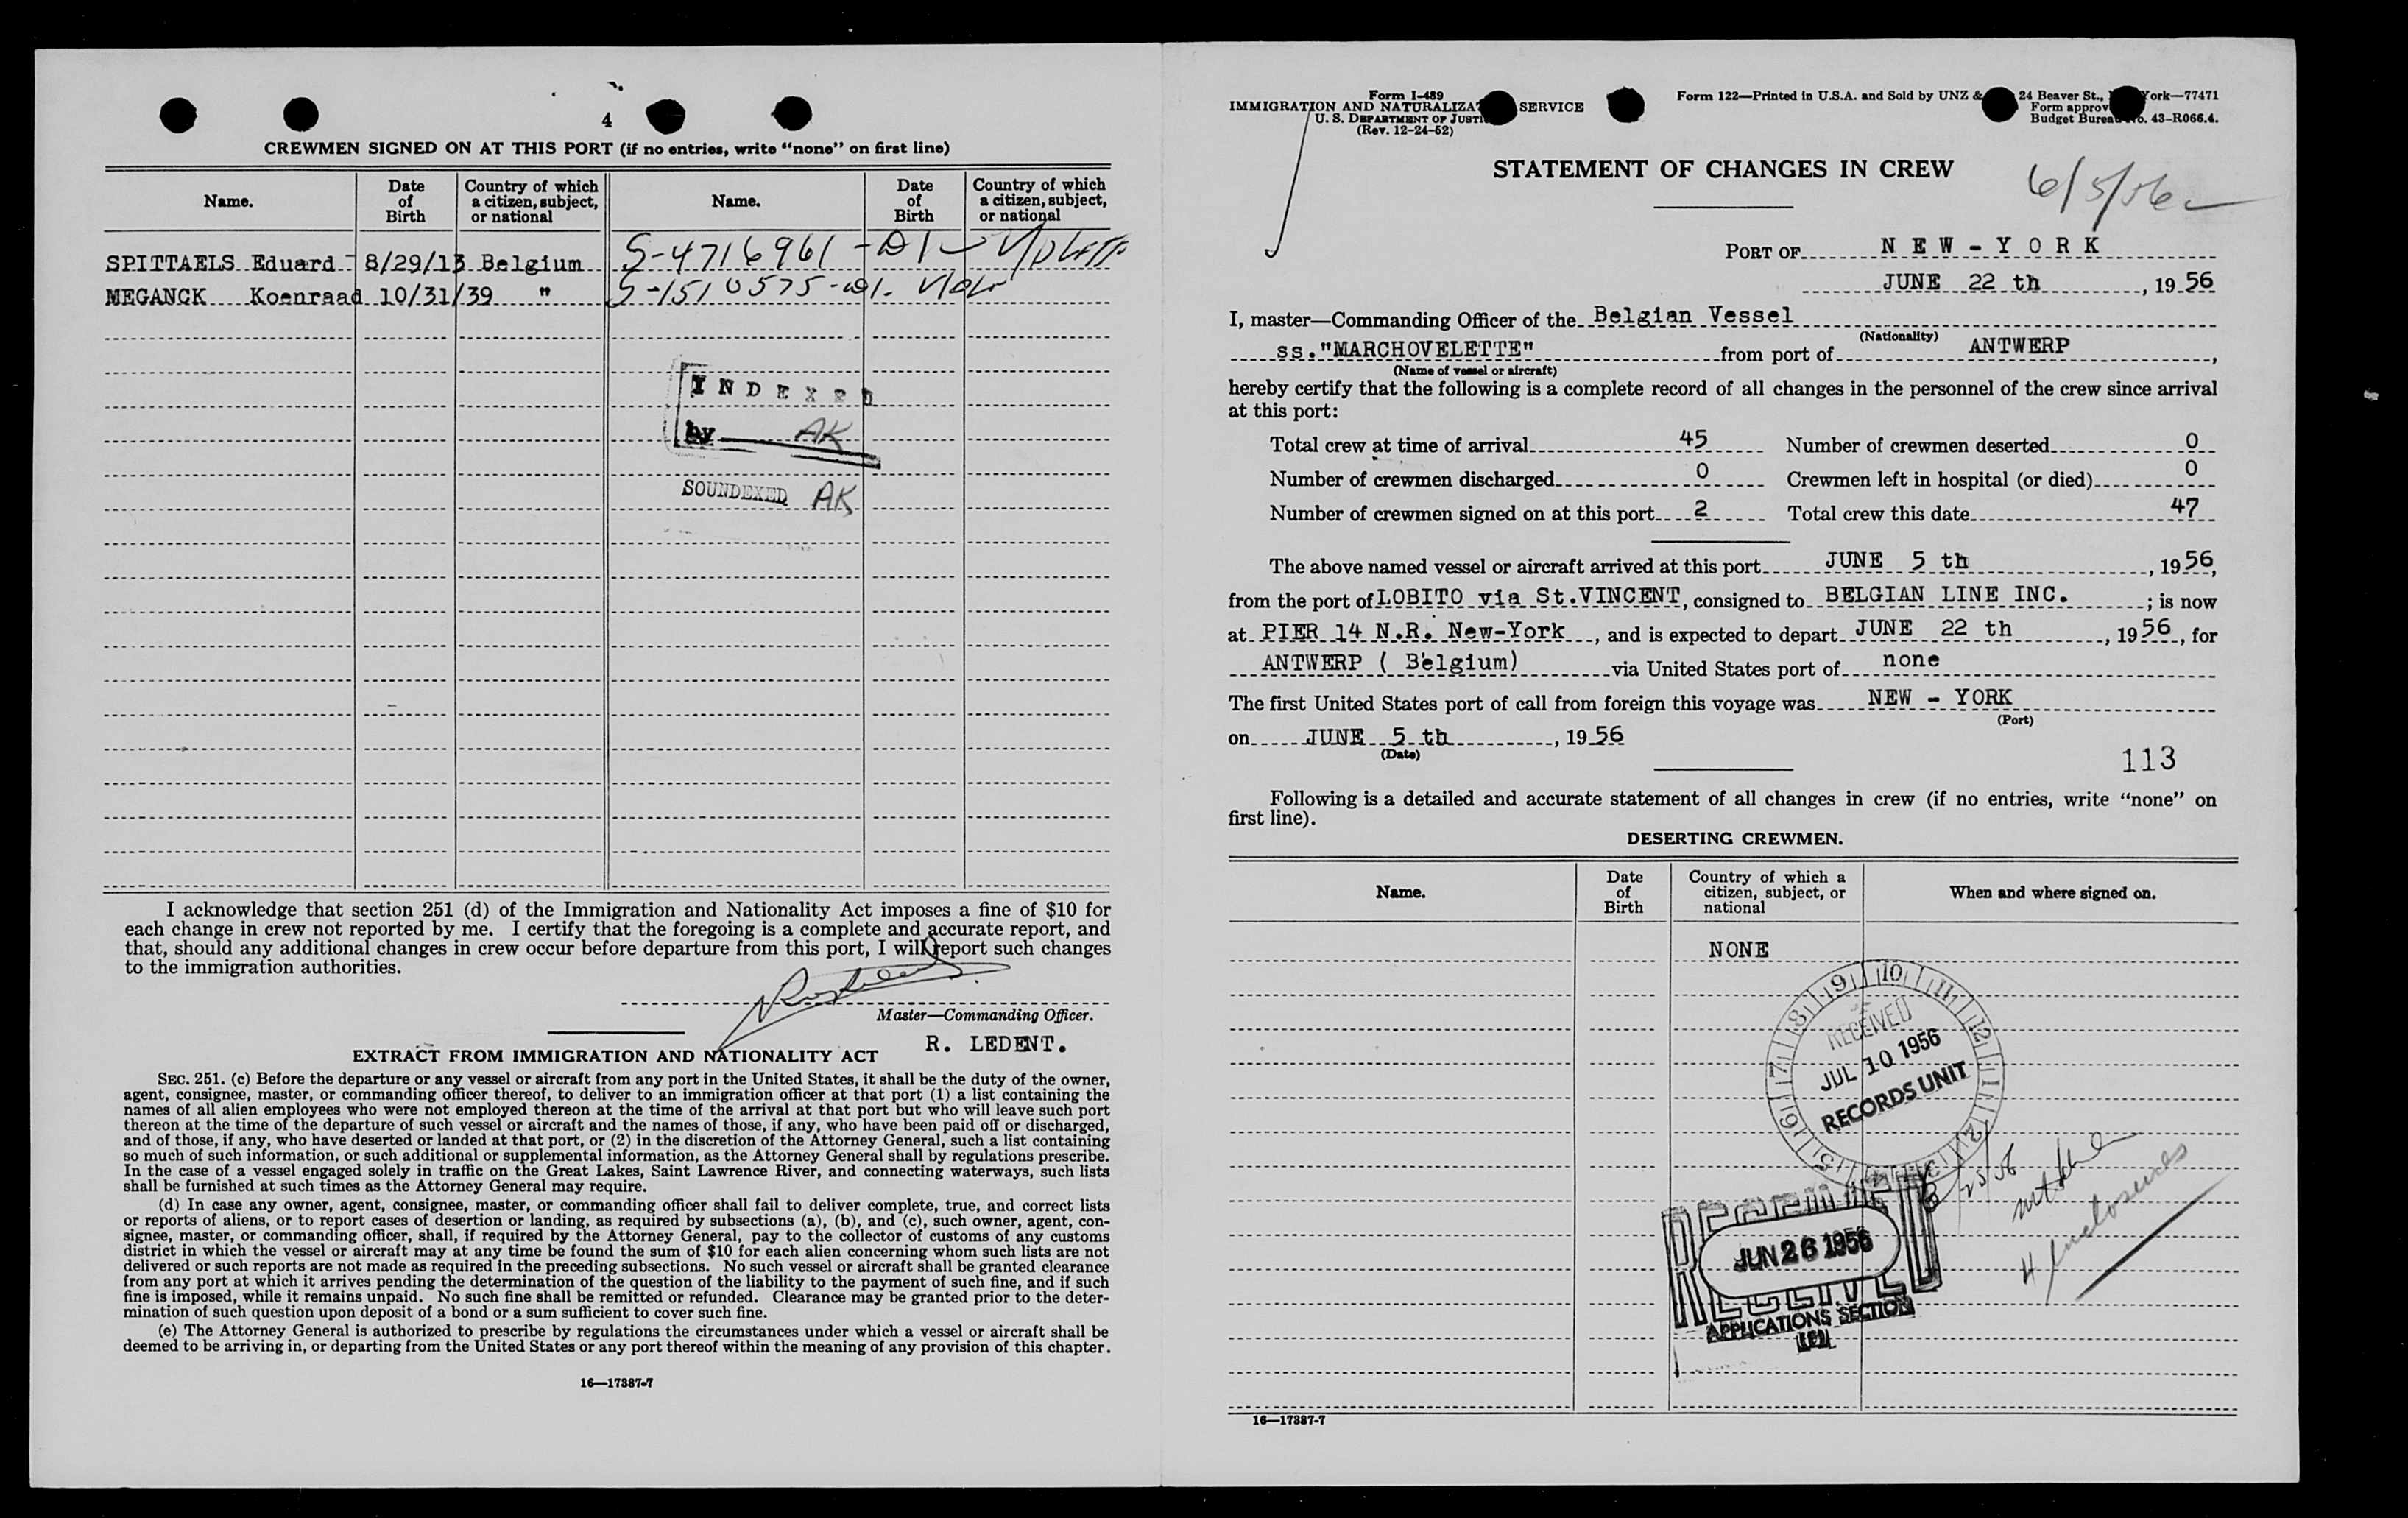 4
CREWMEN SIGNED ON AT THIS PORT (if no entries, write “none” on first line)
Name. Date of Birth Country of which a citizen, subject, or national Name. Date of Birth Country of which a citizen, subject, or national
SPITTAELS Eduard 8/29/13 Belgium S-4716961-D1
MEGANCK Koenraad 10/31/39 " S-1510575-
INDEXED
by AK
SOUNDEXED AK
I acknowledge that section 251 (d) of the Immigration and Nationality Act imposes a fine of $10 for
each change in crew not reported by me. I certify that the foregoing is a complete and accurate report, and
that, should any additional changes in crew occur before departure from this port, I will report such changes
to the immigration authorities.
Master—Commanding Officer.
R. LEDENT.
EXTRACT FROM IMMIGRATION AND NATIONALITY ACT
SEC. 251. (c) Before the departure or any vessel or aircraft from any port in the United States, it shall be the duty of the owner,
agent, consignee, master, or commanding officer thereof, to deliver to an immigration officer at that port (1) a list containing the
names of all alien employees who were not employed thereon at the time of the arrival at that port but who will leave such port
thereon at the time of the departure of such vessel or aircraft and the names of those, if any, who have been paid off or discharged,
and of those, if any, who have deserted or landed at that port, or (2) in the discretion of the Attorney General, such a list containing
so much of such information, or such additional or supplemental information, as the Attorney General shall by regulations prescribe.
In the case of a vessel engaged solely in traffic on the Great Lakes, Saint Lawrence River, and connecting waterways, such lists
shall be furnished at such times as the Attorney General may require.
(d) In case any owner, agent, consignee, master, or commanding officer shall fail to deliver complete, true, and correct lists
or reports of aliens, or to report cases of desertion or landing, as required by subsections (a), (b), and (c), such owner, agent, con-
signee, master, or commanding officer, shall, if required by the Attorney General, pay to the collector of customs of any customs
district in which the vessel or aircraft may at any time be found the sum of $10 for each alien concerning whom such lists are not
delivered or such reports are not made as required in the preceding subsections. No such vessel or aircraft shall be granted clearance
from any port at which it arrives pending the determination of the question of the liability to the payment of such fine, and if such
fine is imposed, while it remains unpaid. No such fine shall be remitted or refunded. Clearance may be granted prior to the deter-
mination of such question upon deposit of a bond or a sum sufficient to cover such fine.
(e) The Attorney General is authorized to prescribe by regulations the circumstances under which a vessel or aircraft shall be
deemed to be arriving in, or departing from the United States or any port thereof within the meaning of any provision of this chapter.
16—17387-7
Form I-489
IMMIGRATION AND NATURALIZA SERVICE
U. S. DEPARTMENT OF JUSTI
(Rev. 12-24-52)
Form 122—Printed in U.S.A. and Sold by UNZ & 24 Beaver St., York—77471
Form approv
Budget Bureau No. 43-R066.4.
STATEMENT OF CHANGES IN CREW
6/5/56
PORT OF NEW-YORK
JUNE 22 th, 1956
I, master—Commanding Officer of the Belgian Vessel
(Nationality)
ss."MARCHOVELETTE" from port of ANTWERP,
(Name of vessel or aircraft)
hereby certify that the following is a complete record of all changes in the personnel of the crew since arrival
at this port:
Total crew at time of arrival 45 Number of crewmen deserted 0
Number of crewmen discharged 0 Crewmen left in hospital (or died) 0
Number of crewmen signed on at this port 2 Total crew this date 47
The above named vessel or aircraft arrived at this port JUNE 5 th, 1956,
from the port of LOBITO via St.VINCENT, consigned to BELGIAN LINE INC.; is now
at PIER 14 N.R. New-York, and is expected to depart JUNE 22 th, 1956, for
ANTWERP ( Belgium) via United States port of none
The first United States port of call from foreign this voyage was NEW - YORK
(Port)
on JUNE 5 th, 1956
(Date)
113
Following is a detailed and accurate statement of all changes in crew (if no entries, write “none” on
first line).
DESERTING CREWMEN.
Name. Date of Birth Country of which a citizen, subject, or national When and where signed on.
NONE
9 10 11 12 1 2 3 4 5 6 7 8
RECEIVED
JUL 10 1956
RECORDS UNIT
4 Enclosures
RECEIVED
JUN 26 1956
APPLICATIONS SECTION
16—17387-7